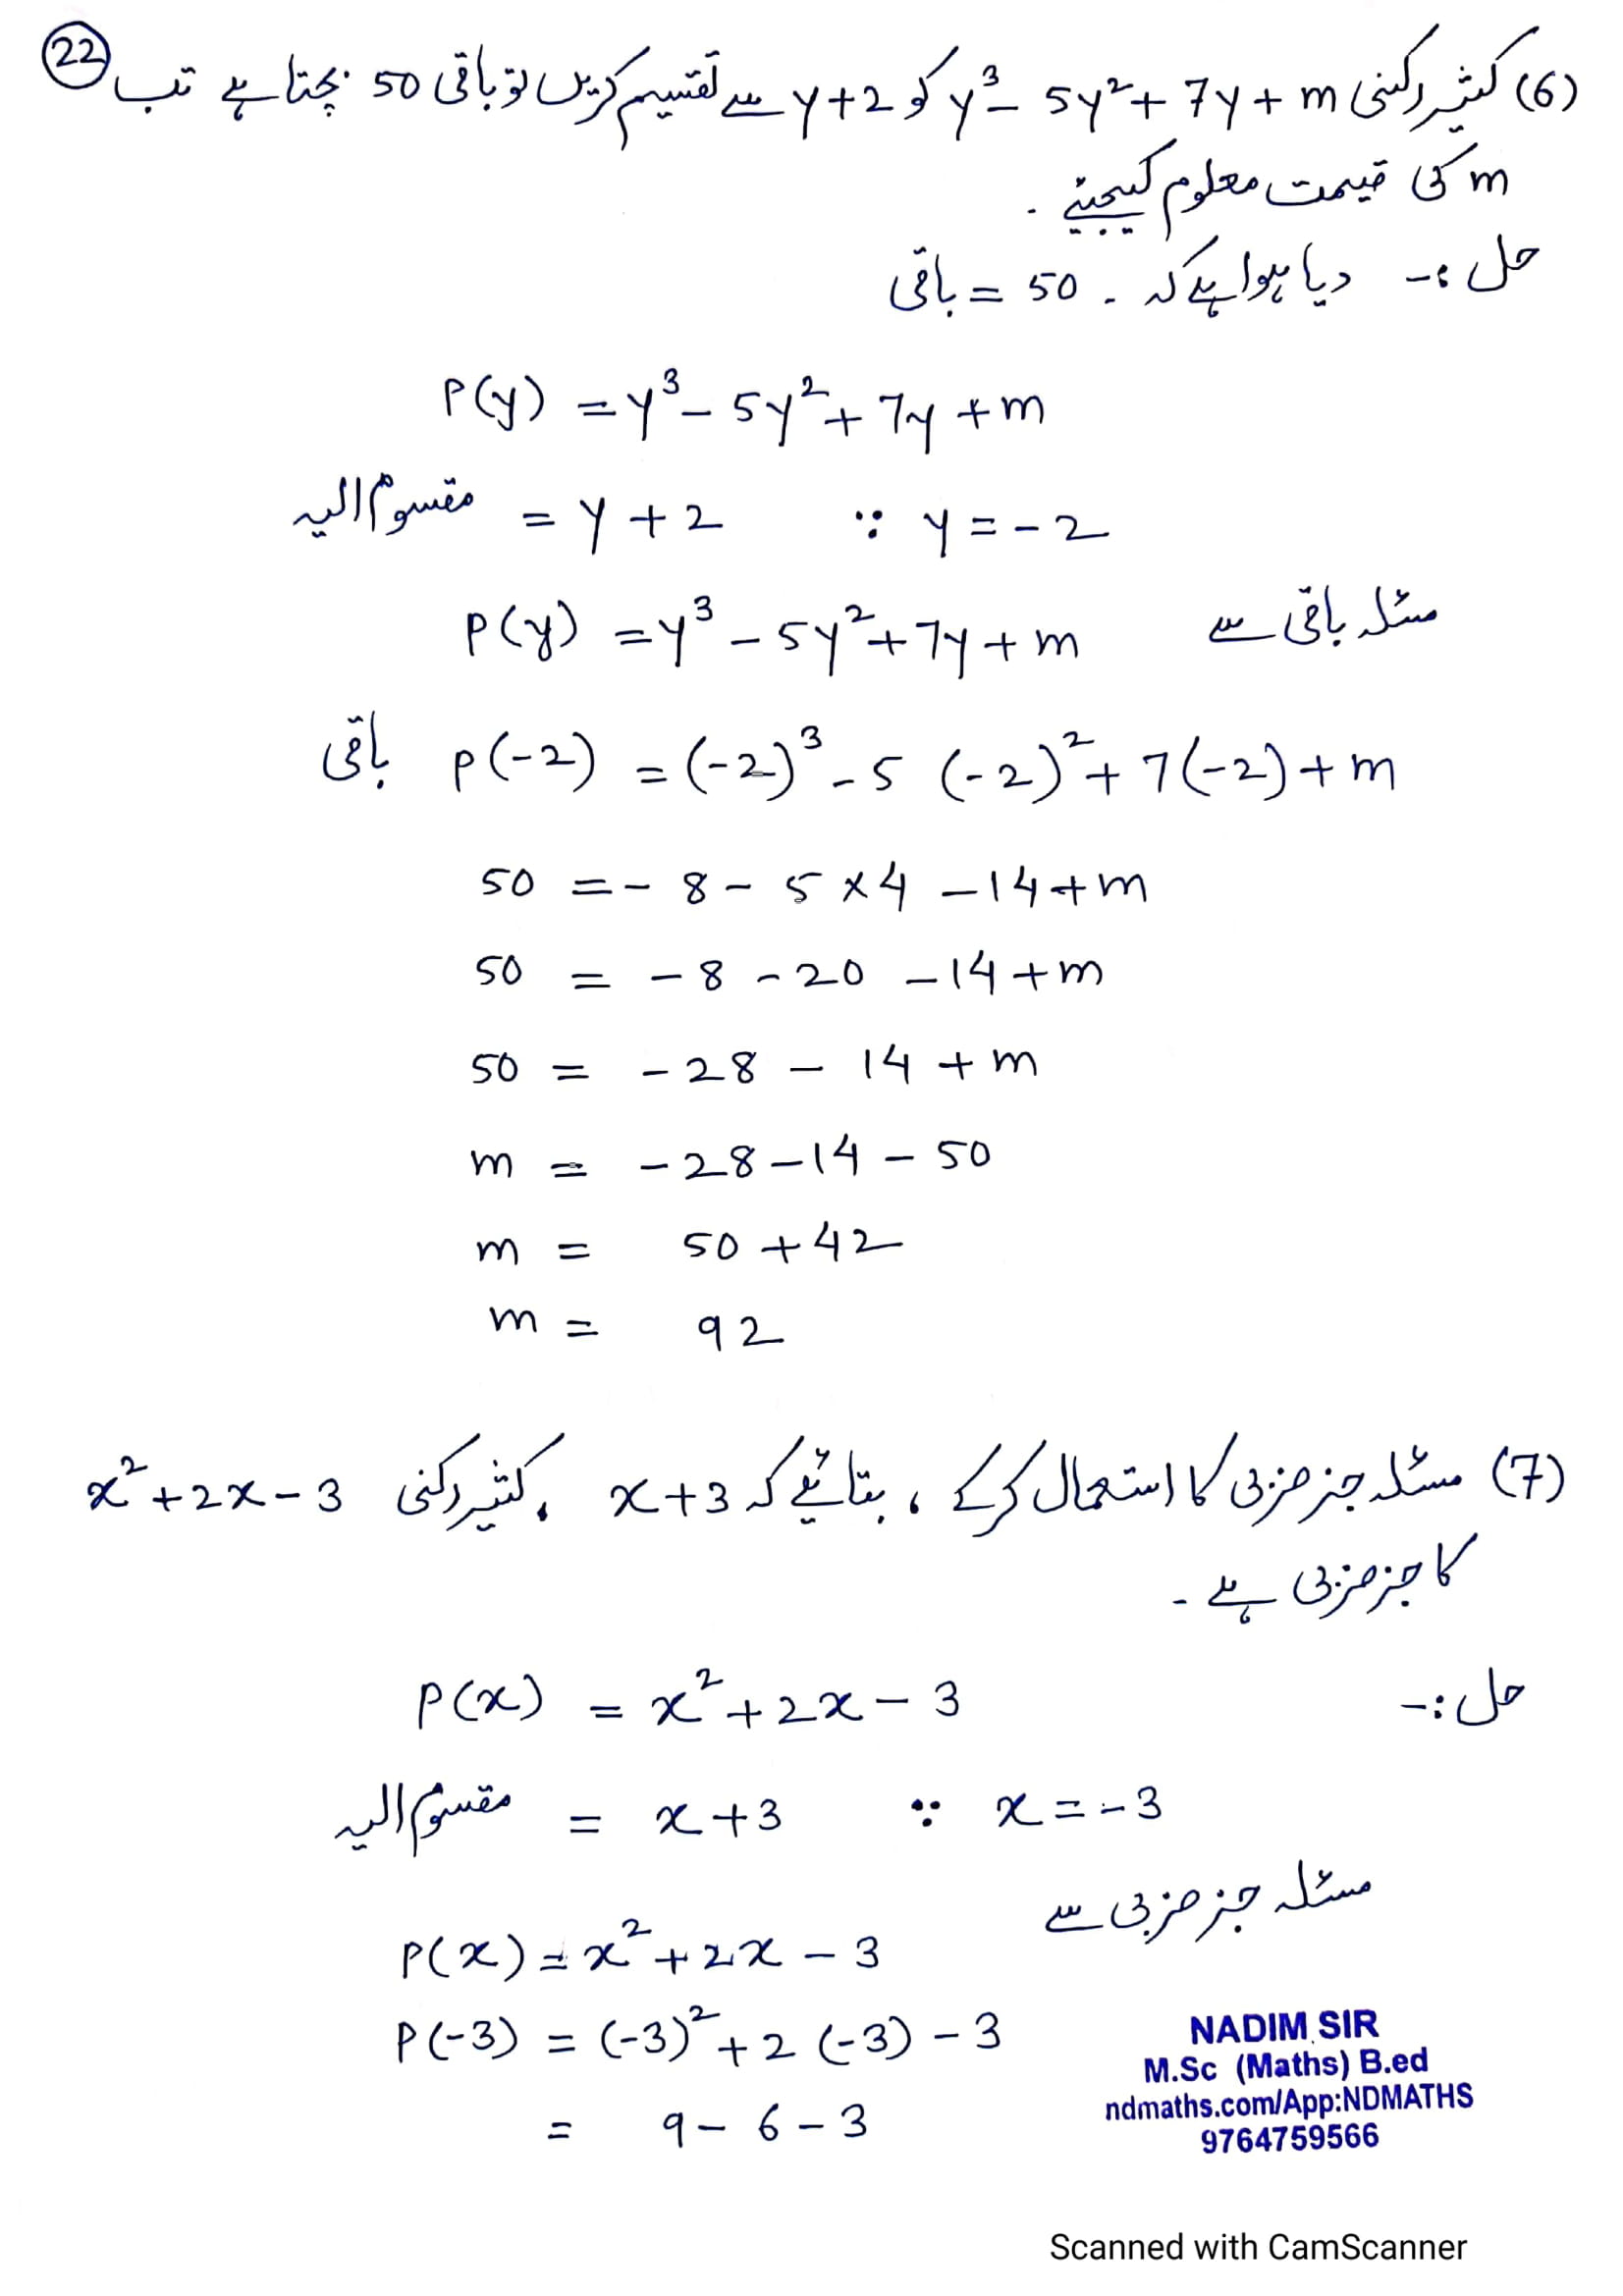 (22)
(6) کثیر رکنی y³ - 5y² + 7y + m کو y+2 سے تقسیم کریں تو باقی 50 بچتا ہے تب
m کی قیمت معلوم کیجیئے .
حل :- دیا ہوا ہے کہ . 50 = باقی
P(y) = y³ - 5y² + 7y + m
مقسوم الیہ = y + 2 ∵ y = -2
مسئلہ باقی سے
P(y) = y³ - 5y² + 7y + m
باقی P(-2) = (-2)³ - 5 (-2)² + 7(-2) + m
50 = - 8 - 5 × 4 - 14 + m
50 = - 8 - 20 - 14 + m
50 = - 28 - 14 + m
m = - 28 - 14 - 50
m = 50 + 42
m = 92
(7) مسئلہ جز ضربی کا استعمال کرکے ، بتائیے کہ x+3 ، کثیر رکنی x² + 2x - 3
کا جز ضربی ہے -
حل :-
P(x) = x² + 2x - 3
مقسوم الیہ = x + 3 ∵ x = -3
مسئلہ جز ضربی سے
P(x) = x² + 2x - 3
P(-3) = (-3)² + 2 (-3) - 3
= 9 - 6 - 3
NADIM SIR
M.Sc (Maths) B.ed
ndmaths.com/App:NDMATHS
9764759566
Scanned with CamScanner